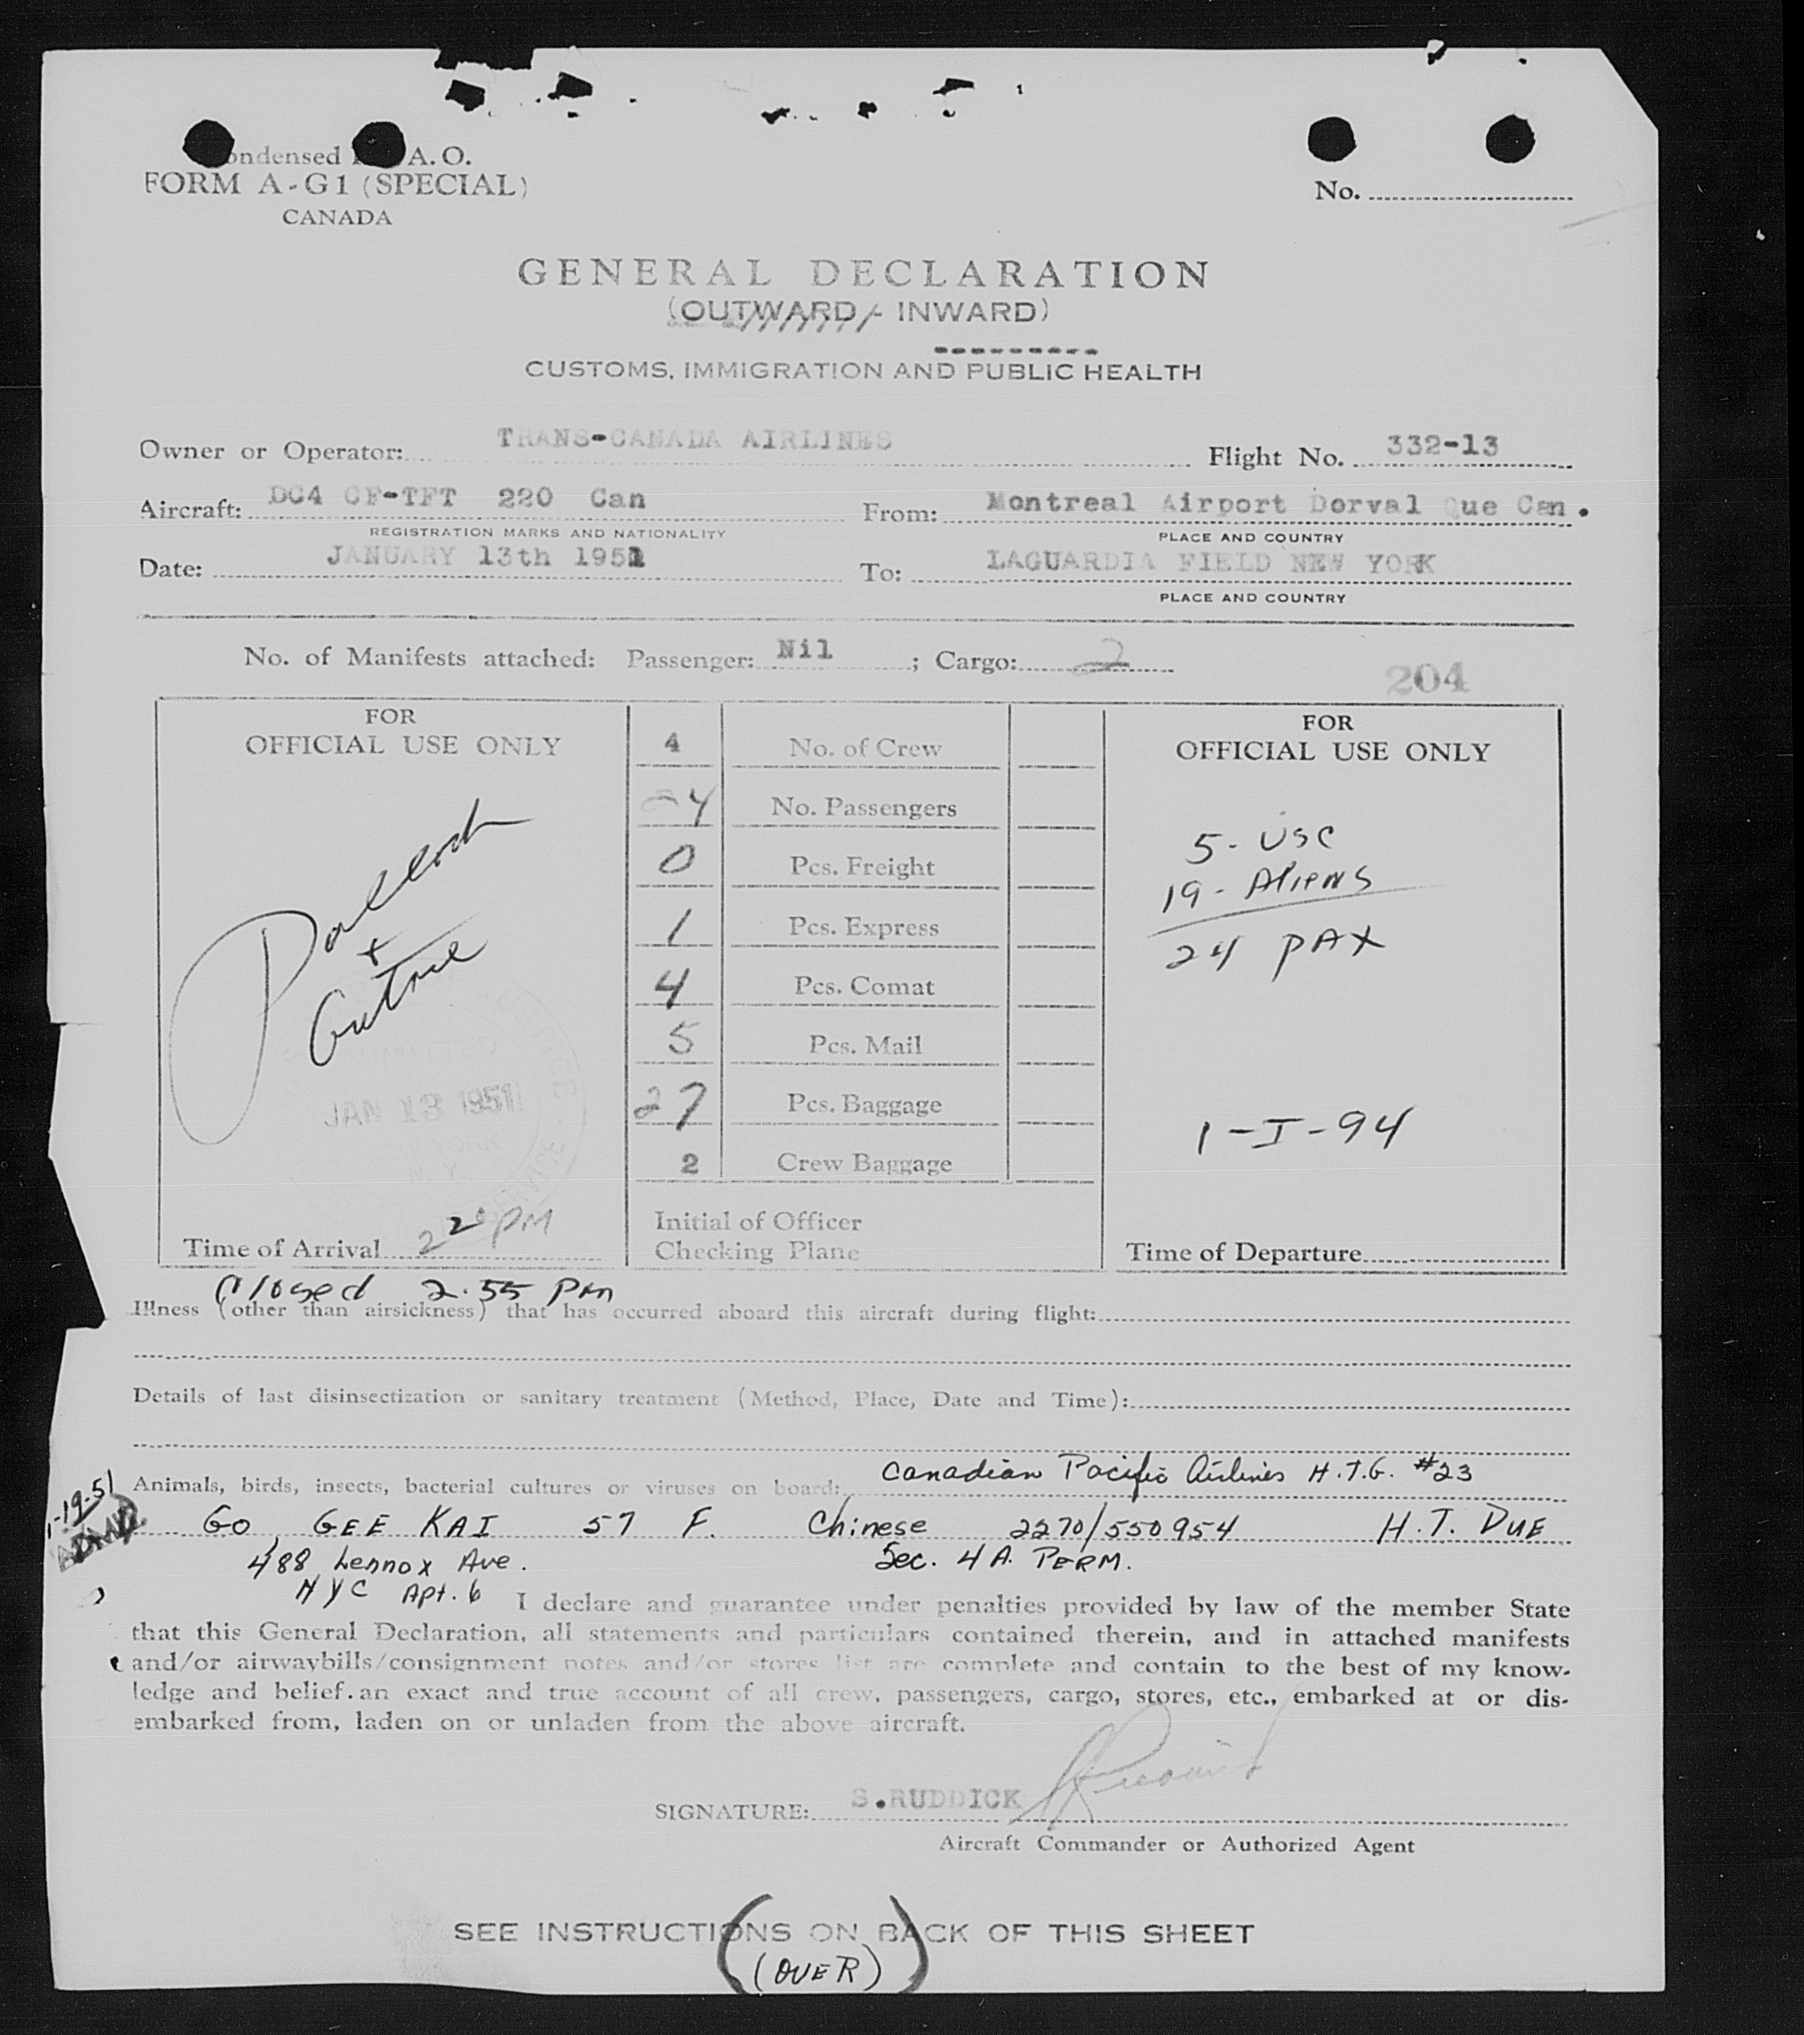 ondensed A. O.
FORM A-G1 (SPECIAL)
CANADA
No.
GENERAL DECLARATION
(OUTWARD - INWARD)
CUSTOMS, IMMIGRATION AND PUBLIC HEALTH
Owner or Operator: TRANS-CANADA AIRLINES Flight No. 332-13
Aircraft: DC4 CF-TFT 220 Can From: Montreal Airport Dorval Que Can.
REGISTRATION MARKS AND NATIONALITY PLACE AND COUNTRY
Date: JANUARY 13th 1951 To: LAGUARDIA FIELD NEW YORK
PLACE AND COUNTRY
No. of Manifests attached: Passenger: Nil ; Cargo: 2
204
FOR
OFFICIAL USE ONLY
+
JAN 13 1951
Time of Arrival 2 20 PM
4 No. of Crew
24 No. Passengers
0 Pcs. Freight
1 Pcs. Express
4 Pcs. Comat
5 Pcs. Mail
27 Pcs. Baggage
2 Crew Baggage
Initial of Officer
Checking Plane
FOR
OFFICIAL USE ONLY
5 - USC
19 - Aliens
24 PAX
1-I-94
Time of Departure
Closed 2.55 Pm
Illness (other than airsickness) that has occurred aboard this aircraft during flight:
Details of last disinsectization or sanitary treatment (Method, Place, Date and Time):
Animals, birds, insects, bacterial cultures or viruses on board: Canadian Pacific Airlines H.T.G. #23
1-19-51
GO, GEE KAI 57 F. Chinese 2270/550954 H.T. DUE
488 Lennox Ave. Sec. 4A. PERM.
NYC Apt. 6
I declare and guarantee under penalties provided by law of the member State
that this General Declaration, all statements and particulars contained therein, and in attached manifests
and/or airwaybills/consignment notes and/or stores list are complete and contain to the best of my know-
ledge and belief. an exact and true account of all crew, passengers, cargo, stores, etc., embarked at or dis-
embarked from, laden on or unladen from the above aircraft.
SIGNATURE: S.RUDDICK
Aircraft Commander or Authorized Agent
SEE INSTRUCTIONS ON BACK OF THIS SHEET
(OVER)